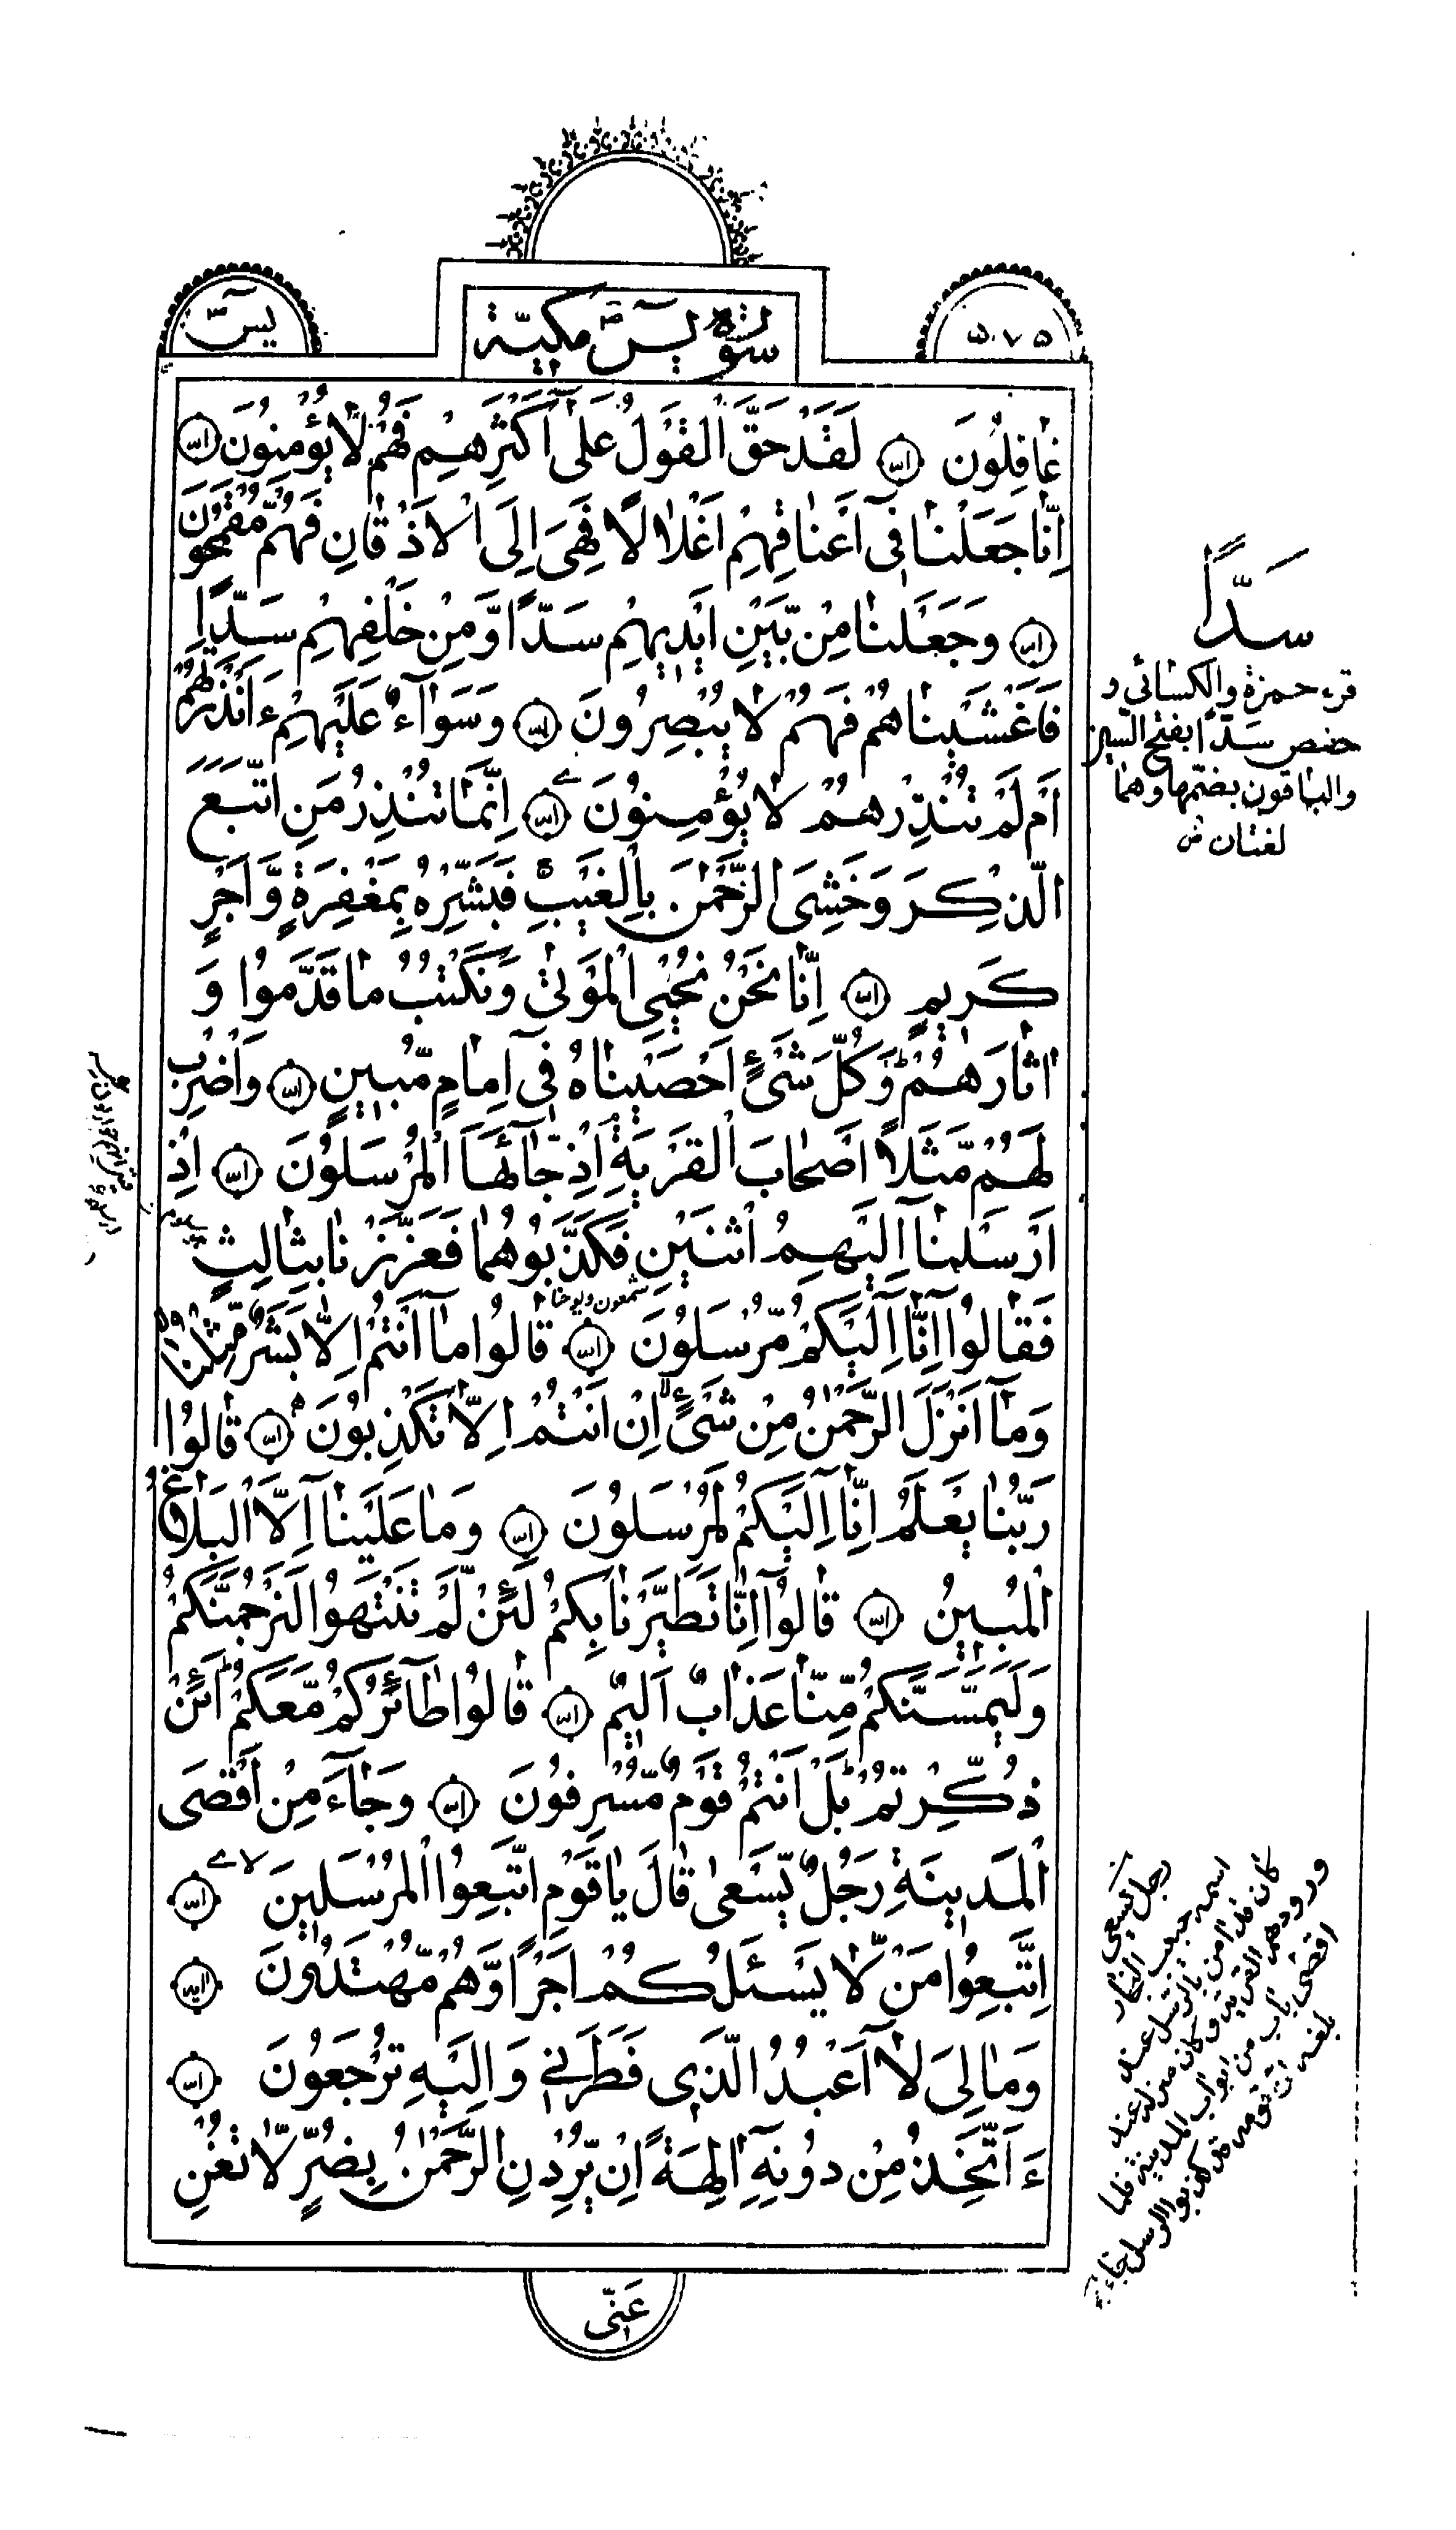 ۵۷۵
سورة یٰسٓ مكیّة
یٰسٓ
غافِلُونَ لَقَدْ حَقَّ الْقَوْلُ عَلٰٓى اَكْثَرِهِمْ فَهُمْ لَا یُؤْمِنُونَ
اِنَّا جَعَلْنَا فِیٓ اَعْنَاقِهِمْ اَغْلَالًا فَهِیَ اِلَى الْاَذْقَانِ فَهُمْ مُّقْمَحُونَ
وَجَعَلْنَا مِنْ بَّیْنِ اَیْدِیهِمْ سَدًّا وَّمِنْ خَلْفِهِمْ سَدًّا
فَاَغْشَیْنَاهُمْ فَهُمْ لَا یُبْصِرُونَ وَسَوَآءٌ عَلَیْهِمْ ءَاَنْذَرْتَهُمْ
اَمْ لَمْ تُنْذِرْهُمْ لَا یُؤْمِنُونَ اِنَّمَا تُنْذِرُ مَنِ اتَّبَعَ
الذِّكْرَ وَخَشِیَ الرَّحْمٰنَ بِالْغَیْبِ فَبَشِّرْهُ بِمَغْفِرَةٍ وَّاَجْرٍ
كَرِیمٍ اِنَّا نَحْنُ نُحْیِی الْمَوْتٰى وَنَكْتُبُ مَا قَدَّمُوا وَ
اٰثَارَهُمْ وَكُلَّ شَیْءٍ اَحْصَیْنَاهُ فِیٓ اِمَامٍ مُّبِینٍ وَاضْرِبْ
لَهُمْ مَّثَلًا اَصْحَابَ الْقَرْیَةِ اِذْ جَآئَهَا الْمُرْسَلُونَ اِذْ
اَرْسَلْنَآ اِلَیْهِمُ اثْنَیْنِ فَكَذَّبُوهُمَا فَعَزَّزْنَا بِثَالِثٍ
شمعون ویوحنا
فَقَالُوٓا اِنَّآ اِلَیْكُمْ مُّرْسَلُونَ قَالُوا مَآ اَنْتُمْ اِلَّا بَشَرٌ مِّثْلُنَا
وَمَآ اَنْزَلَ الرَّحْمٰنُ مِنْ شَیْءٍ اِنْ اَنْتُمْ اِلَّا تَكْذِبُونَ قَالُوا
رَبُّنَا یَعْلَمُ اِنَّآ اِلَیْكُمْ لَمُرْسَلُونَ وَمَا عَلَیْنَآ اِلَّا الْبَلَاغُ
الْمُبِینُ قَالُوٓا اِنَّا تَطَیَّرْنَا بِكُمْ لَئِنْ لَّمْ تَنْتَهُوا لَنَرْجُمَنَّكُمْ
وَلَیَمَسَّنَّكُمْ مِّنَّا عَذَابٌ اَلِیمٌ قَالُوا طَآئِرُكُمْ مَّعَكُمْ اَئِنْ
ذُكِّرْتُمْ بَلْ اَنْتُمْ قَوْمٌ مُّسْرِفُونَ وَجَآءَ مِنْ اَقْصَى
الْمَدِینَةِ رَجُلٌ یَّسْعٰى قَالَ یَا قَوْمِ اتَّبِعُوا الْمُرْسَلِینَ
اِتَّبِعُوا مَنْ لَّا یَسْئَلُكُمْ اَجْرًا وَّهُمْ مُّهْتَدُونَ
وَمَا لِیَ لَآ اَعْبُدُ الَّذِی فَطَرَنِی وَاِلَیْهِ تُرْجَعُونَ
ءَاَتَّخِذُ مِنْ دُونِهٖٓ اٰلِهَةً اِنْ یُّرِدْنِ الرَّحْمٰنُ بِضُرٍّ لَّا تُغْنِ
عَنِّی
سَدًّا
قرء حمزة والكسائی و
حفص سَدًّا بفتح السین
والباقون بضمّها وهما
لغتان
رجل یسعى
اسمه حبیب النجار
كان قد امن بالرسل عند
ورودهم القریة وكان منزله عند
اقصى باب من ابواب المدینة فلما
بلغه ان قومه قد كذبوا الرسل جاء